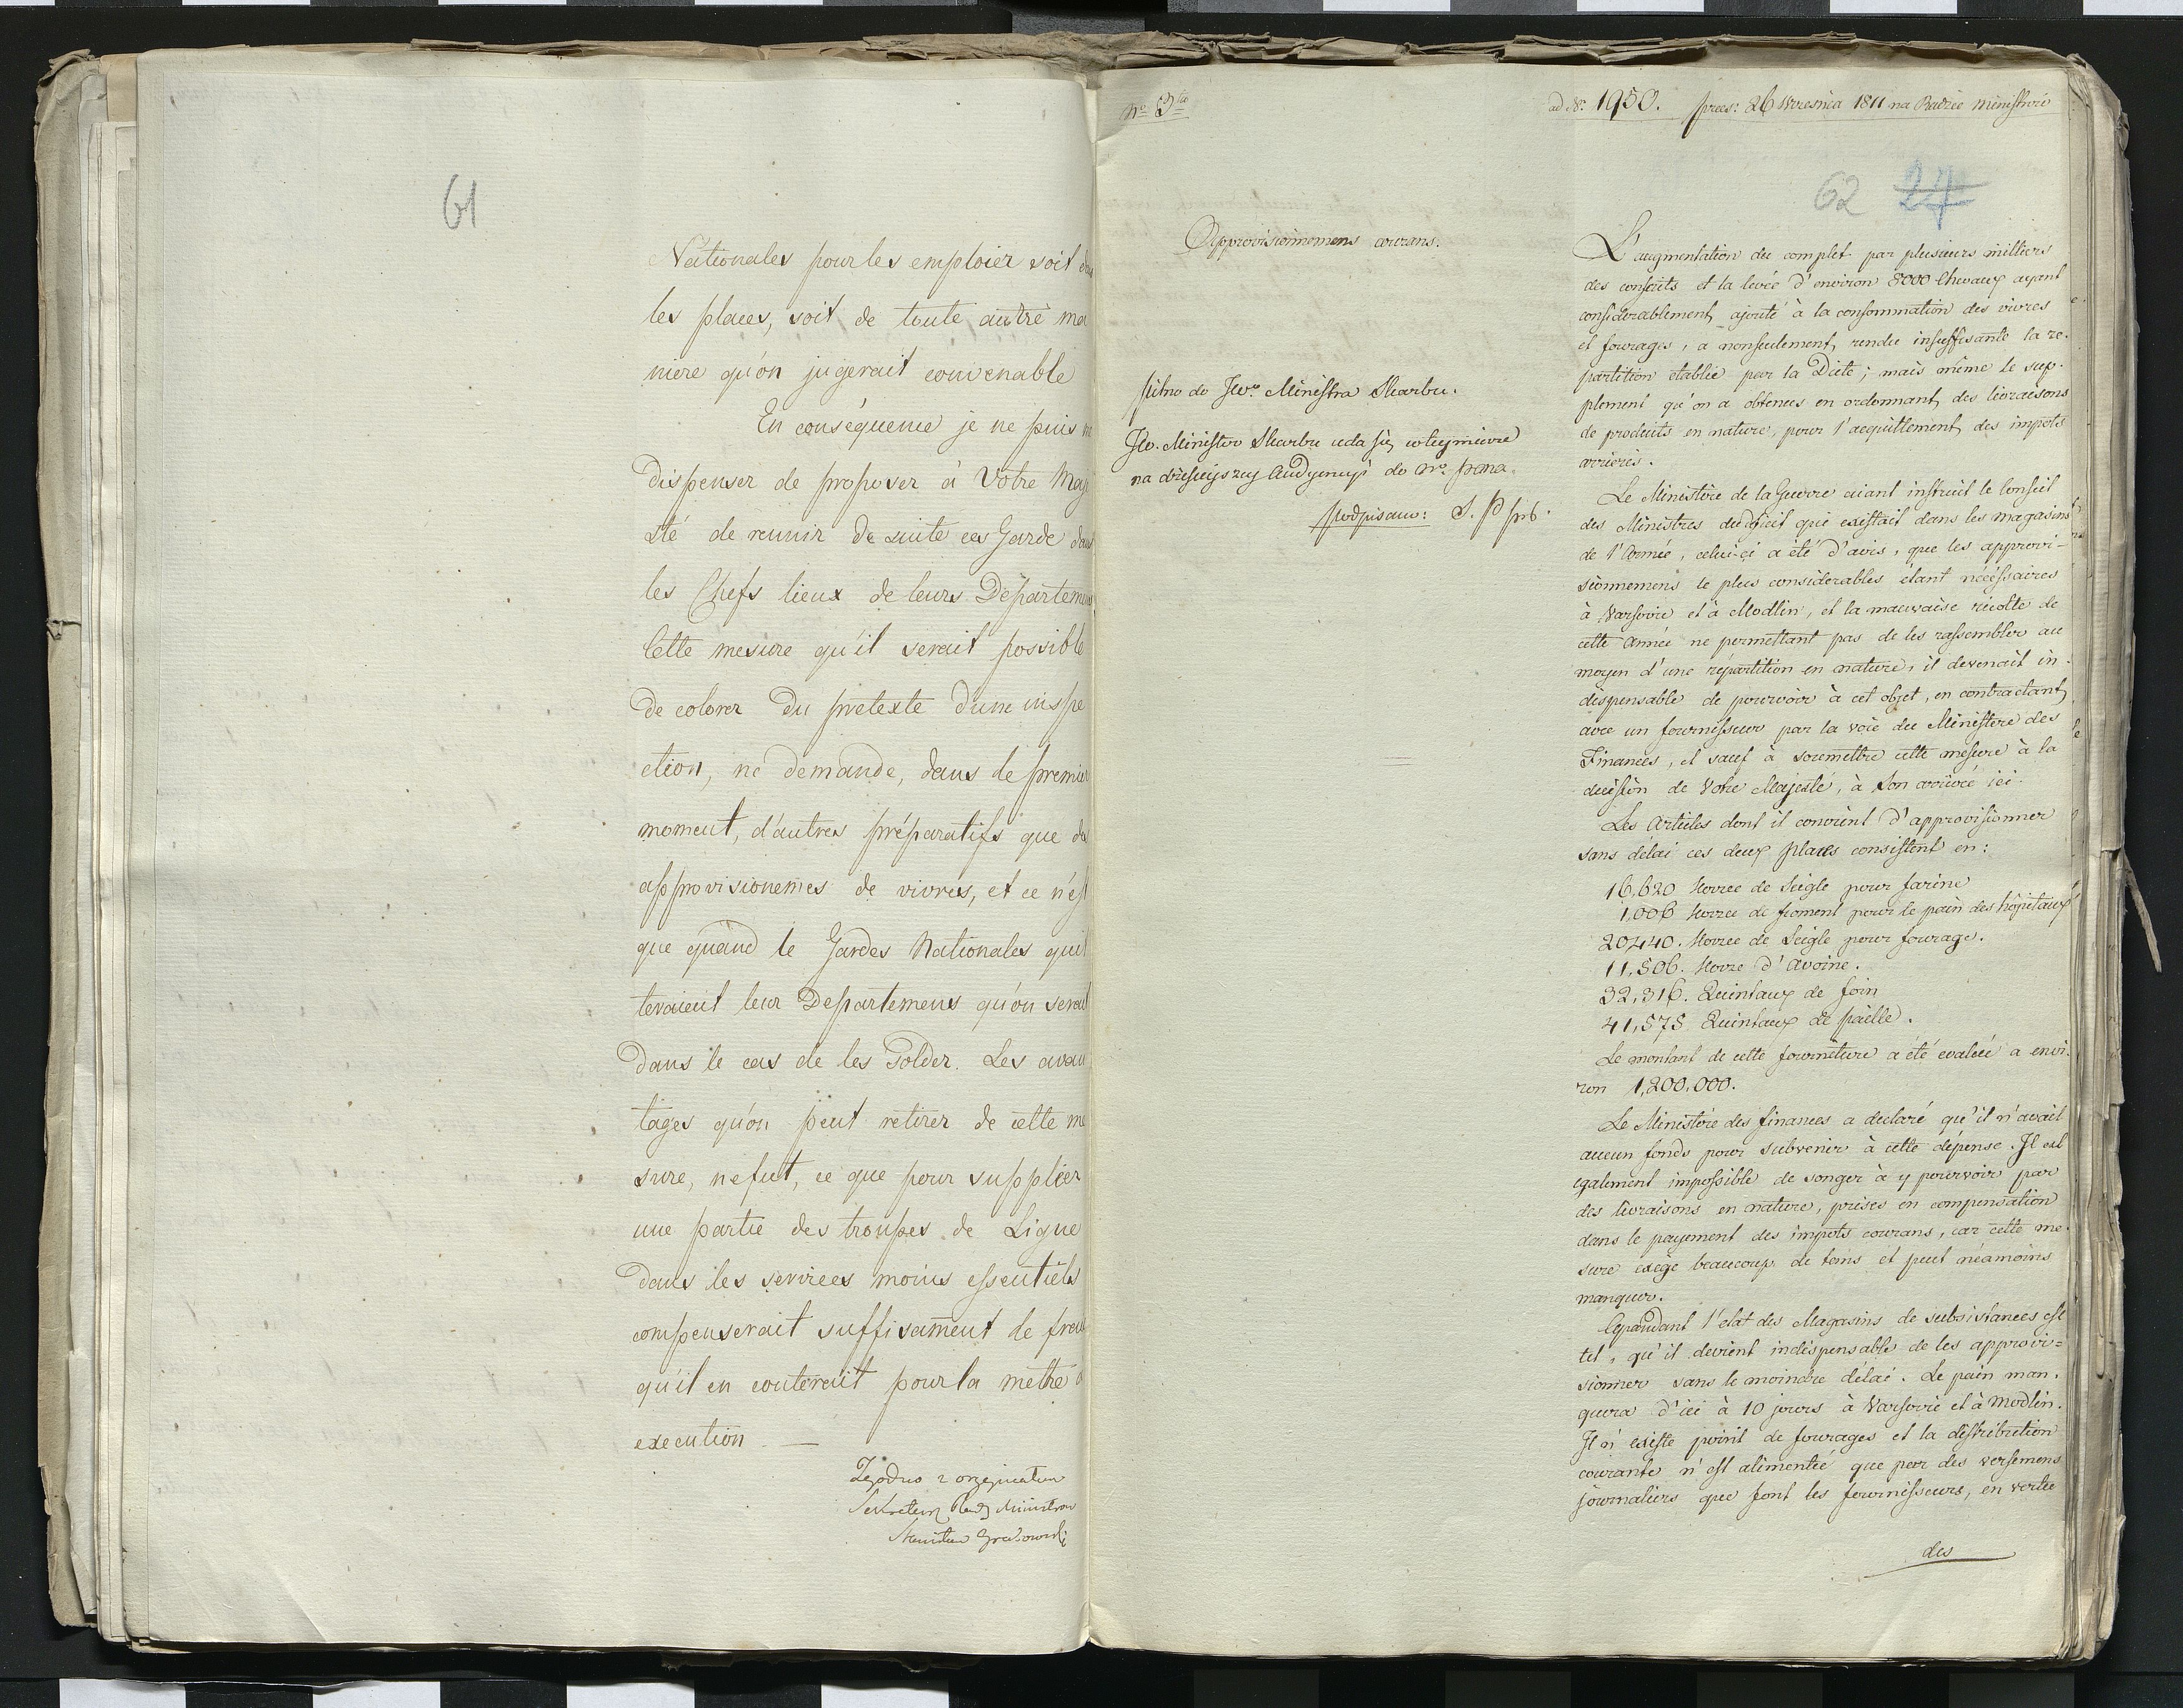 61
Nationales pour les emploier soit dans
les places, soit de toute autre ma
niere qu'on jugerait convenable
En conséquence je ne puis me
dispenser de proposer à Votre Maje
sté de reunir de suite ces Garde dans
les Chefs lieux de leurs Département
Cette mesure qu'il serait possible
de colorer du pretexte d'une inspe
ction, ne demande, dans le premier
moment, d'autres préparatifs que de
approvisionemes de vivres, et ce n'est
que quànd le Gardes Nationales quit
teraient leur Departemens qu'on serait
dans le cas de les Solder. Les avan
tages qu'on peut retirer de cette me
sure, ne fut, ce que pour supplier
une partie des troupes de Ligne
dans les services moins essentiels
compenserait suffisament le frais
qu'il en couterait pour la mettre à
execution. —
Zgodno z orginałem
Sekretarz Rady Ministrow
Stanisław Grabowski
No 3tio
ad No. 1950. praes: 26 Wrzesnia 1811 na Radzie Ministrów
62 27
Approvisionnemens courans.
pilno do JWo. Ministra Skarbu.
JW. Minister Skarbu uda się w tey mierze
na dzisieyszey Audyencyi do No. Pana.
podpisano: S. P. prb.
L'augmentation du complet par plusieurs milliers
des conscrits et la levée d'environ 8000 Chevaux ayant
considerablement ajouté à la consommation des vivres
et fourages, a nonseulement rendu insuffisante la re-
partition etablie par la Diète; mais même le sup-
plement qu'on a obtenus en ordonnant des livraisons
de produits en nature, pour l'acquittement des impots
arrierés.
Le Ministère de la Guerre aiant instruit le Conseil
des Ministres du deficit qui existait dans les magasins
de l'Armée, celui-ci a été d'avis, que les approvi-
sionnemens le plus considerables étant nécéssaires
à Varsovie et à Modlin, et la mauvaise récolte de
cette Année ne permettant pas de les rassembler au
moyen d'une répartition en nature, il devenait in-
dispensable de pourvoir à cet objet, en contractant
avec un fournisseur par la voie du Ministere des
Finances, et sauf à soumettre cette mesure à la
decision de Votre Majesté, à Son arrivée ici.
Les Articles dont il convient d'approvisionner
sans délai ces deux places consistent en:
16,620 Korzec de Seigle pour farine
1,006 Korzec de froment pour le pain des hôpitaux
20440. Korzec de Seigle pour fourage.
11,506. Korzec d'avoine.
32,316. Quintaux de foin
41,575 Quintaux de paille.
Le montant de cette fourniture a été evaluée a envi-
ron 1,200,000.
Le Ministère des finances a declaré qu'il n'avait
aucun fonds pour subvenir à cette dépense. Il est
egalement impossible de songer à y pourvoir par
des livraisons en nature, prises en compensation
dans le payement des impots courans, car cette me-
sure exige beaucoup de tems et peut néamoins
manquer.
Cependant l'etat des Magasins de subsistances est
tel, qu'il devient indispensable de les approvi-
sionner sans le moindre délai. Le pain man-
quera d'ici à 10 jours à Varsovie et à Modlin.
Il n'existe point de fourages et la distribution
courante n'est alimentée que par des versemens
journaliers que font les fournisseurs, en vertu
des